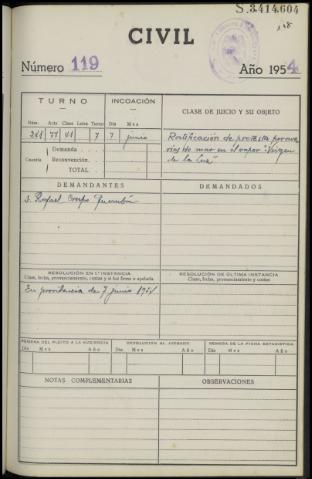 S.3414.604
CIVIL
Número 119
Año 1954
TURNO
INCOACIÓN
CLASE DE JUICIO Y SU OBJETO
Núm. Acto Clase Letra Turno Día Mes
7 7 junio
Ratificación de protesta por averías de mar en el vapor "Virgen de la
Cuantía
Demanda
Reconvención
TOTAL
DEMANDANTES
DEMANDADOS
D. Rafael Crespo
RESOLUCIÓN EN 1.ª INSTANCIA
Clase, fecha, pronunciamiento, costas y si fué firme o apelada
RESOLUCIÓN DE ÚLTIMA INSTANCIA
Clase, fecha, pronunciamiento y costas
En providencia de 7 junio 1954
REMESA DEL PLEITO A LA AUDIENCIA
DEVOLUCIÓN AL JUZGADO
REMESA DE LA FICHA ESTADÍSTICA
Día Mes Año
Día Mes Año
Día Mes Año
NOTAS COMPLEMENTARIAS
OBSERVACIONES